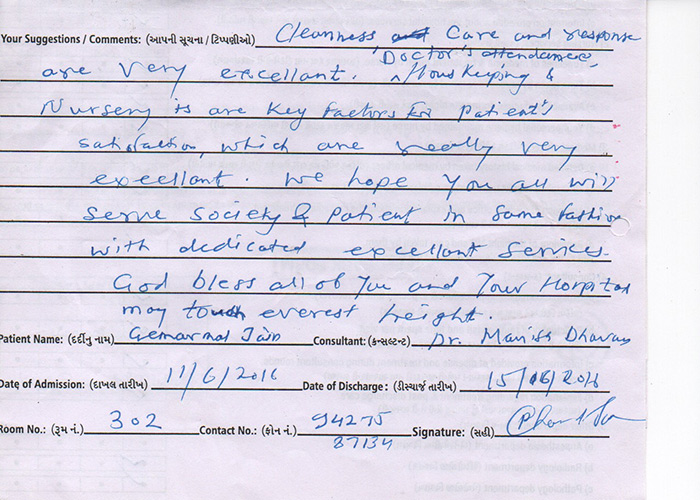 Your Suggestions / Comments: (આપની સૂચના / ટિપ્પણીઓ) Cleanness Care and response
Doctor's attendance,
are very excellant. Hous Keeping &
Nursery is are Key factors for patient's
satisfaction, which are really very
excellant. We hope you all will
serve society & patient in same fashion
with dedicated excellant services.
God bless all of you and your Hospital
may touch everest height.
Patient Name: (દર્દીનુ નામ) Gemarmal Jain Consultant: (કન્સલ્ટન્ટ) Dr. Manish Dhawan
Date of Admission: (દાખલ તારીખ) 11/6/2016 Date of Discharge: (ડીસ્ચાર્જ તારીખ) 15/06/2016
Room No.: (રૂમ નં.) 302 Contact No.: (ફોન નં.) 94275 Signature: (સહી)
87134